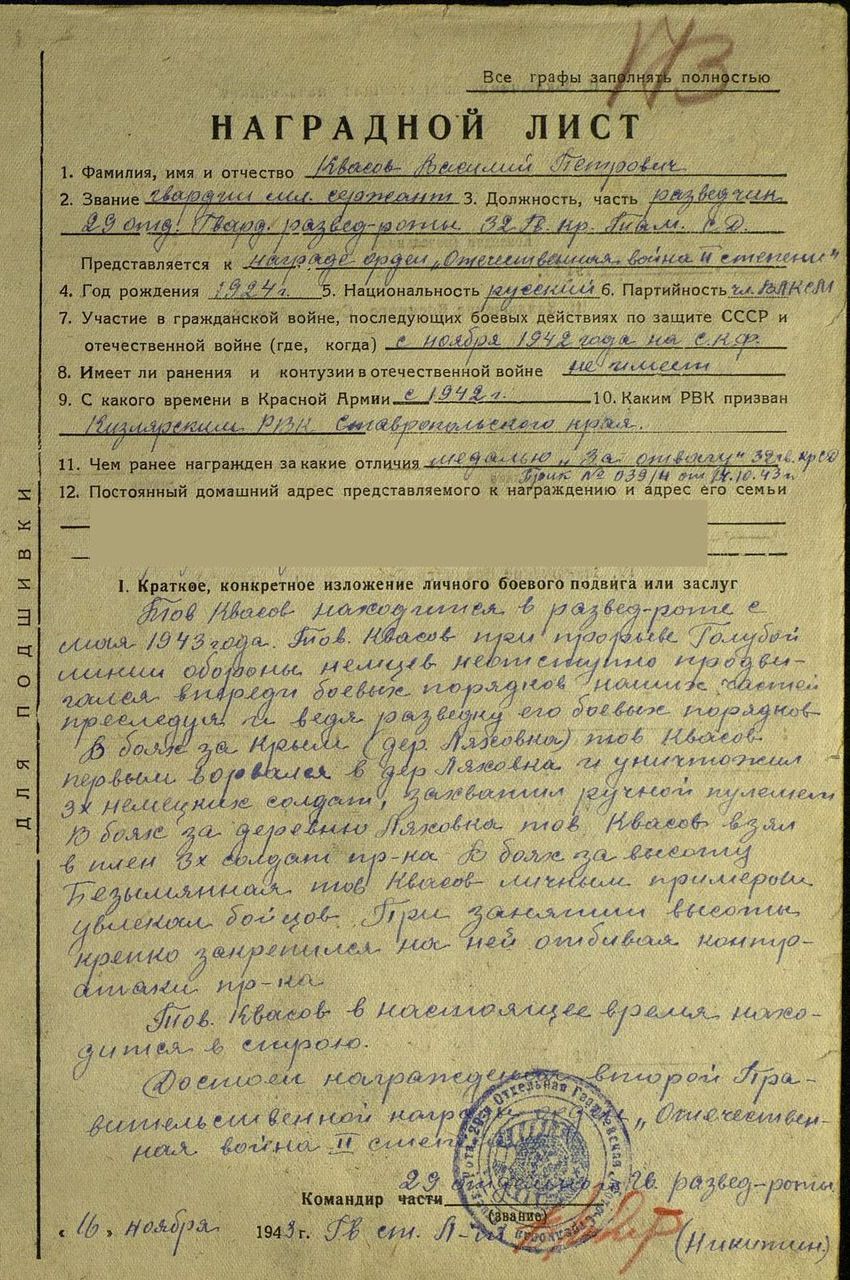 173
Все графы заполнять полностью
НАГРАДНОЙ ЛИСТ
1. Фамилия, имя и отчество Квасов Василий Петрович
2. Звание гвардии мл. сержант 3. Должность, часть разведчик
29 отд. Гвард. развед-роты 32 Гв. кр. Там. с.д.
Представляется к награде орден „Отечественная война II степени"
4. Год рождения 1924 г. 5. Национальность русский 6. Партийность чл. ВЛКСМ
7. Участие в гражданской войне, последующих боевых действиях по защите СССР и
отечественной войне (где, когда) с ноября 1942 года на С.К.Ф.
8. Имеет ли ранения и контузии в отечественной войне не имеет
9. С какого времени в Красной Армии с 1942 г. 10. Каким РВК призван
Кизлярским РВК Ставропольского края.
11. Чем ранее награжден за какие отличия медалью „За отвагу" 32 гв. Кр СД
Приk № 039/н от 14.10.43 г.
12. Постоянный домашний адрес представляемого к награждению и адрес его семьи
ДЛЯ ПОДШИВКИ
I. Краткое, конкретное изложение личного боевого подвига или заслуг
Тов Квасов находится в развед-роте с
мая 1943 года. Тов. Квасов при прорыве Голубой
линии обороны немцев неотступно продви-
гался впереди боевых порядков наших частей
преследуя и ведя разведку его боевых порядков
В боях за Крым (дер. Ляховка) тов Квасов
первым ворвался в дер Ляховка и уничтожил
3х немецких солдат, захватил ручной пулемет
В боях за деревню Ляховка тов. Квасов взял
в плен 3х солдат пр-ка В боях за высоту
Безымянная тов Квасов личным примером
увлекал бойцов. При занятии высоты
крепко закрепился на ней отбивая контр-
атаки пр-ка
Тов. Квасов в настоящее время нахо-
дится в строю.
Достоен награждения второй Пра-
вительственной награды орден „Отечествен-
ная война II степ
29 отдельной Гв. развед-роты
Командир части
(звание)
„16" ноября 1943 г. Гв ст. Л-т (Никитин)